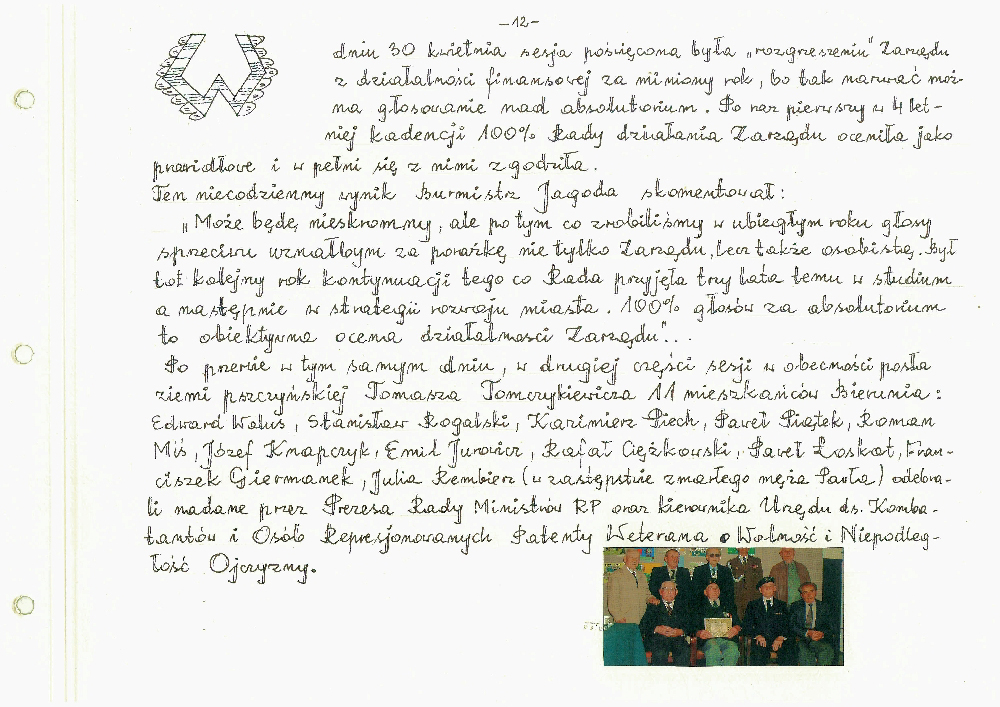 -12-
W dniu 30 kwietnia sesja poświęcona była „rozgrzeszeniu" Zarządu
z działalności finansowej za miniony rok, bo tak nazwać moż-
na głosowanie nad absolutorium. Po raz pierwszy w 4 let-
niej kadencji 100% Rady działania Zarządu oceniła jako
prawidłowe i w pełni się z nimi zgodziła.
Ten niecodzienny wynik Burmistrz Jagoda skomentował:
„Może będę nieskromny, ale po tym co zrobiliśmy w ubiegłym roku głosy
sprzeciwu uznałbym za porażkę nie tylko Zarządu, lecz także osobistą. Był
to kolejny rok kontynuacji tego co Rada przyjęła trzy lata temu w studium
a następnie w strategii rozwoju miasta. 100% głosów za absolutorium
to obiektywna ocena działalności Zarządu"...
Po przerwie w tym samym dniu, w drugiej części sesji w obecności posła
ziemi pszczyńskiej Tomasza Tomczykiewicza 11 mieszkańców Bierunia:
Edward Waluś, Stanisław Rogalski, Kazimierz Piech, Paweł Piątek, Roman
Miś, Józef Knapczyk, Emil Jurowicz, Rafał Ciężkowski, Paweł Łoskot, Fran-
ciszek Giermanek, Julia Rembierz (w zastępstwie zmarłego męża Pawła) odebra-
li nadane przez Prezesa Rady Ministrów RP oraz kierownika Urzędu ds. Komba-
tantów i Osób Represjonowanych Patenty Weterana o Wolność i Niepodleg-
łość Ojczyzny.